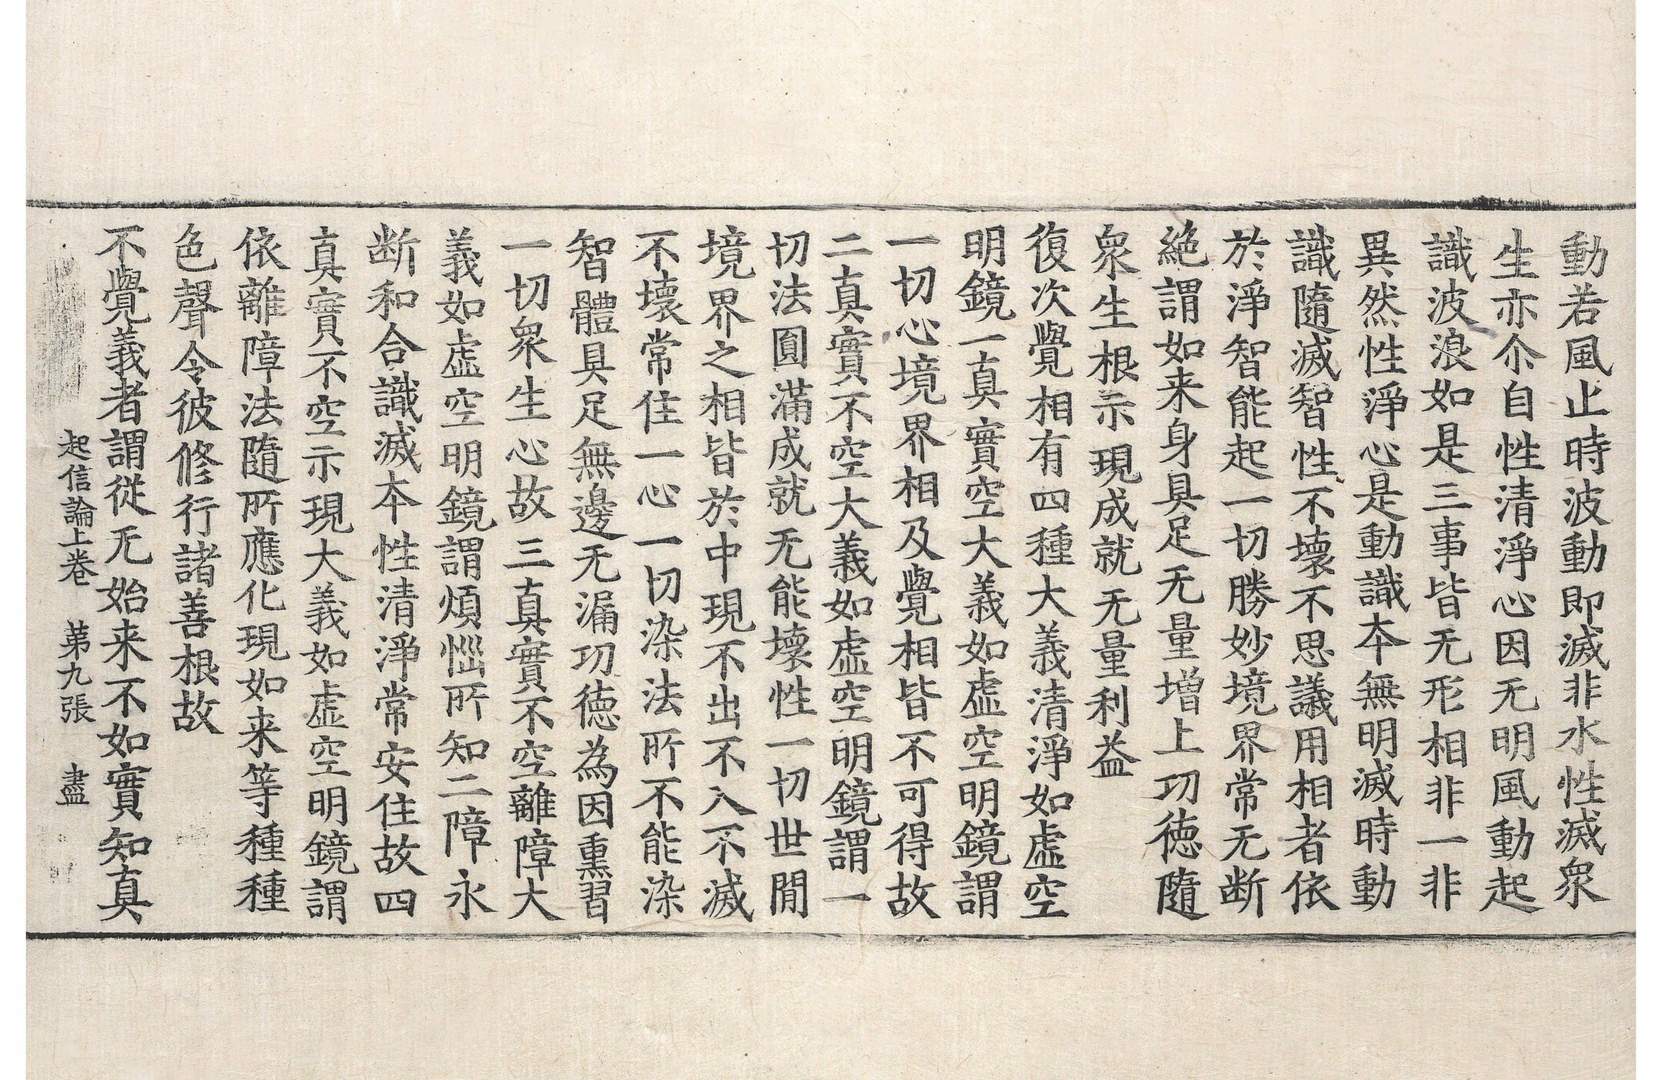 動若風止時波動即滅非水性滅衆
生亦尒自性清淨心因无明風動起
識波浪如是三事皆无形相非一非
異然性淨心是動識本無明滅時動
識隨滅智性不壞不思議用相者依
於淨智能起一切勝妙境界常无断
絶謂如来身具足无量增上功徳隨
衆生根示現成就无量利益
復次覺相有四種大義清淨如虛空
明鏡一真實空大義如虛空明鏡謂
一切心境界相及覺相皆不可得故
二真實不空大義如虛空明鏡謂一
切法圓滿成就无能壞性一切世閒
境界之相皆於中現不出不入不滅
不壞常住一心一切染法所不能染
智體具足無邊无漏功徳為因熏習
一切衆生心故三真實不空離障大
義如虛空明鏡謂煩惱所知二障永
断和合識滅本性清淨常安住故四
真實不空示現大義如虛空明鏡謂
依離障法隨所應化現如来等種種
色聲令彼修行諸善根故
不覺義者謂従无始来不如實知真
起信論上卷 第九張 盡